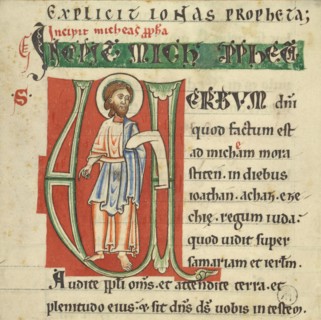 EXPLICIT IONAS PROPHETA;
Incipit micheas ppha
INCIPIT MICH PPHETA
VERBUM dni
quod factum est
ad micham mora
sticen. in diebus
ioathan. achaz. eze
chie. regum iuda.
quod uidit super
samariam et ierlm.
Audite ppli oms. et attendite terra. et
plenitudo eius. & sit dns ds uobis in testem.